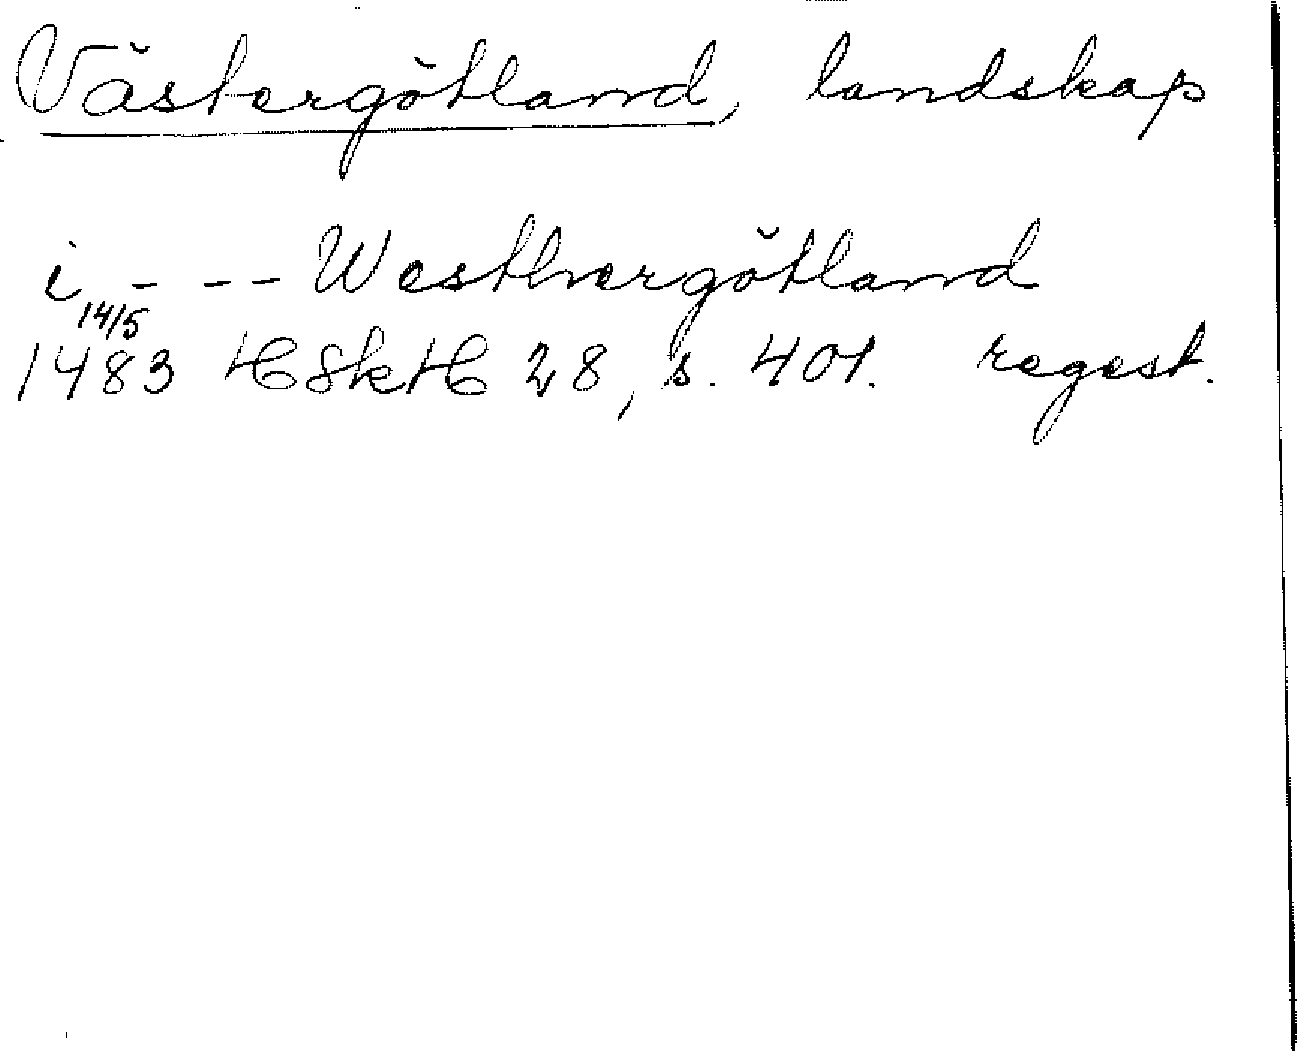 Västergötland, landskap
i - - - Westhergötland
14/5
1483 HSkH 28, s. 401. regest.